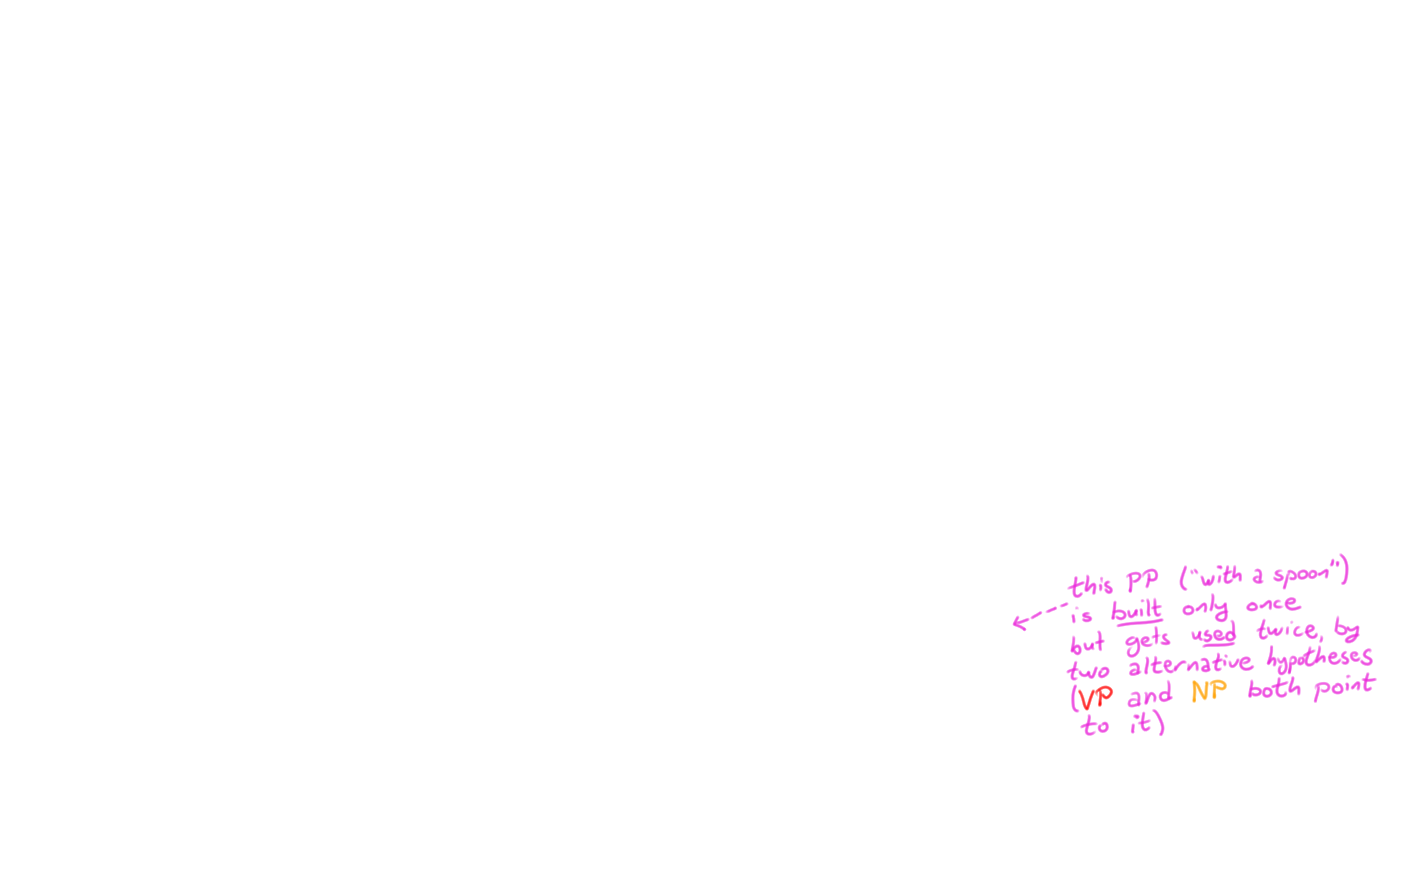 this PP ("with a spoon")
is built only once
but gets used twice, by
two alternative hypotheses
(VP and NP both point
to it)